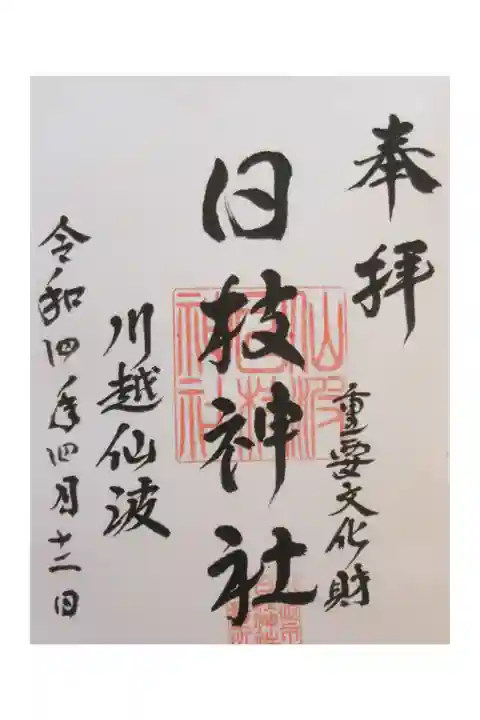 奉拝
重要文化財
日枝神社
川越仙波
令和四年四月十二日
仙波
日枝
神社